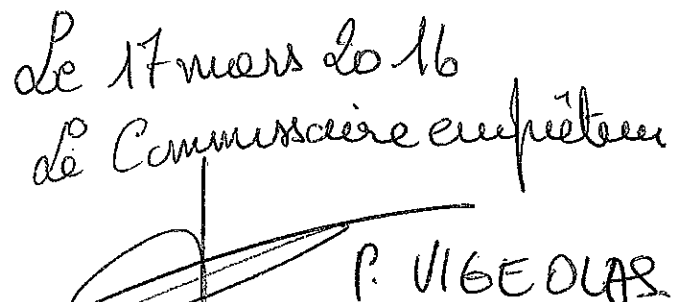 Le 17 mars 2016
Le Commissaire enquêteur
P. VIGEOLAS